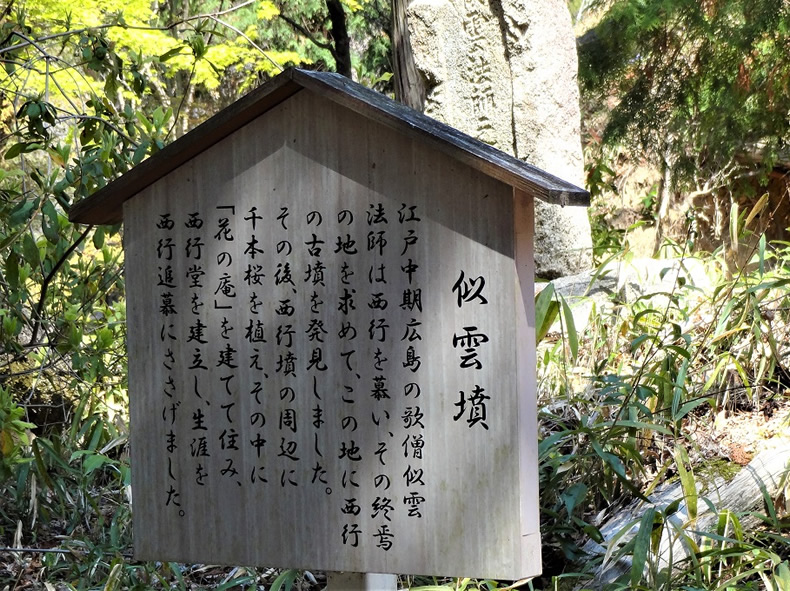 似雲墳
江戸中期広島の歌僧似雲
法師は西行を慕い、その終焉
の地を求めて、この地に西行
の古墳を発見しました。
その後、西行墳の周辺に
千本桜を植え、その中に
「花の庵」を建てて住み、
西行堂を建立し、生涯を
西行追慕にささげました。
雲法師